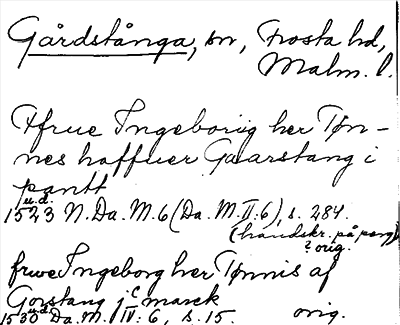 Gårdstånga, sn, Frosta hd,
Malm. l.
Ffrue Ingeboriig her Tøn-
nes haffuer Gaarstang i
pantt
u.d.
1523 N.Da.M.6 (Da.M.II:6), s. 284.
(handskr. på perg)
? orig.
frwe Ingeborg her Tønnis af
Gorstang j c marck
1530 u.d. Da.M. IV:6, s.15. orig.